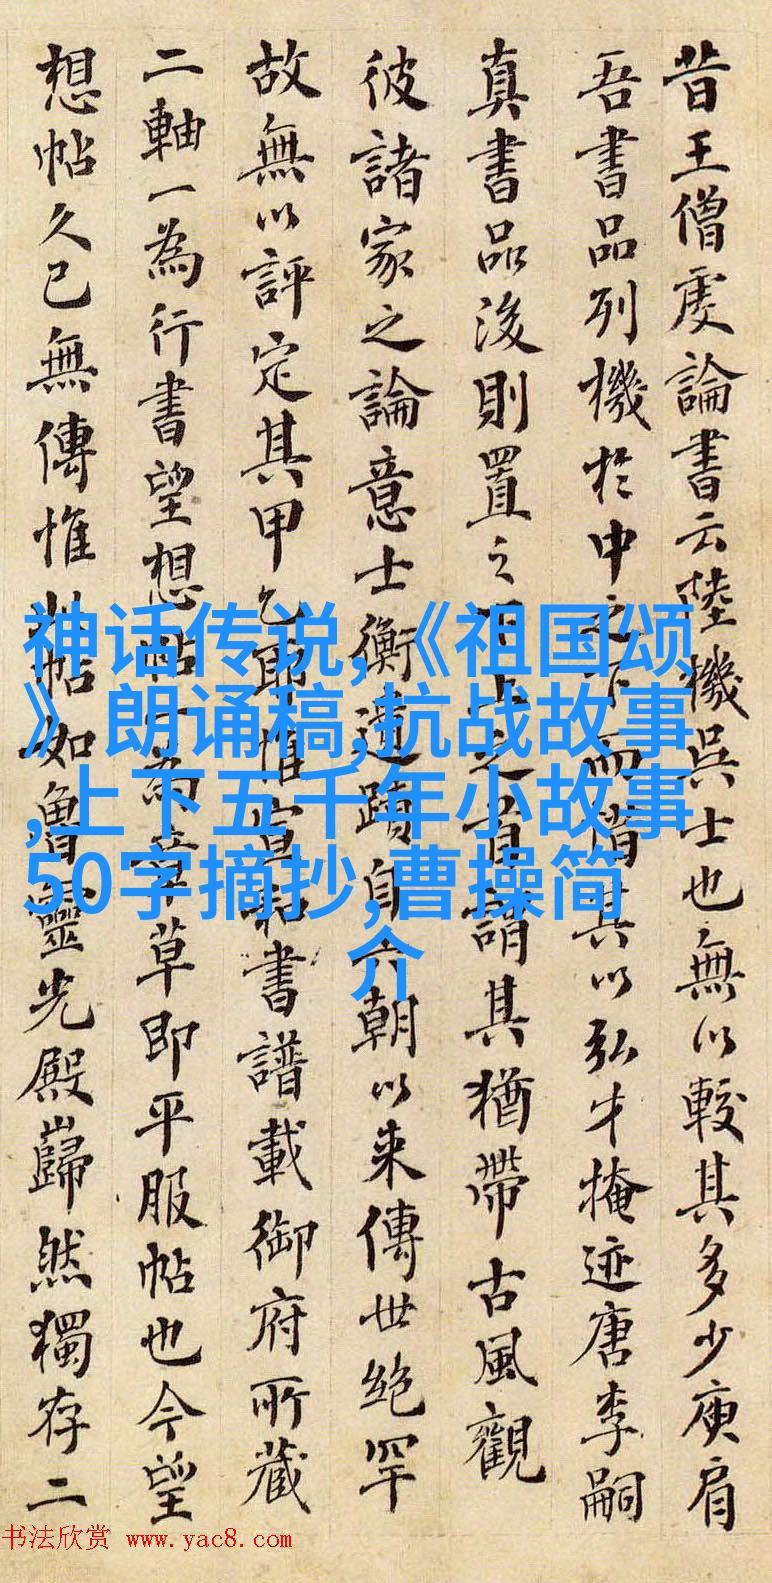 昔王僧虔論書云陸機吳士也無以較其多少庾肩
吾書品列機於中之下而惜其以弘才掩迹唐李嗣
真書品後則置之下上之首謂其猶帶古風觀
彼諸家之論意士衡遺蹟自六朝以来傳世絶罕
故無以評定其甲乙耶惟宣和書譜載御府所藏
二軸一為行書望想帖一為章草即平服帖也今望
想帖久已無傳惟此帖如魯靈光殿巋然獨存二
神话传说,《祖国颂
》朗诵稿,抗战故事
,上下五千年小故事
50字摘抄,曹操简
介
书法欣赏 www.yac8.com